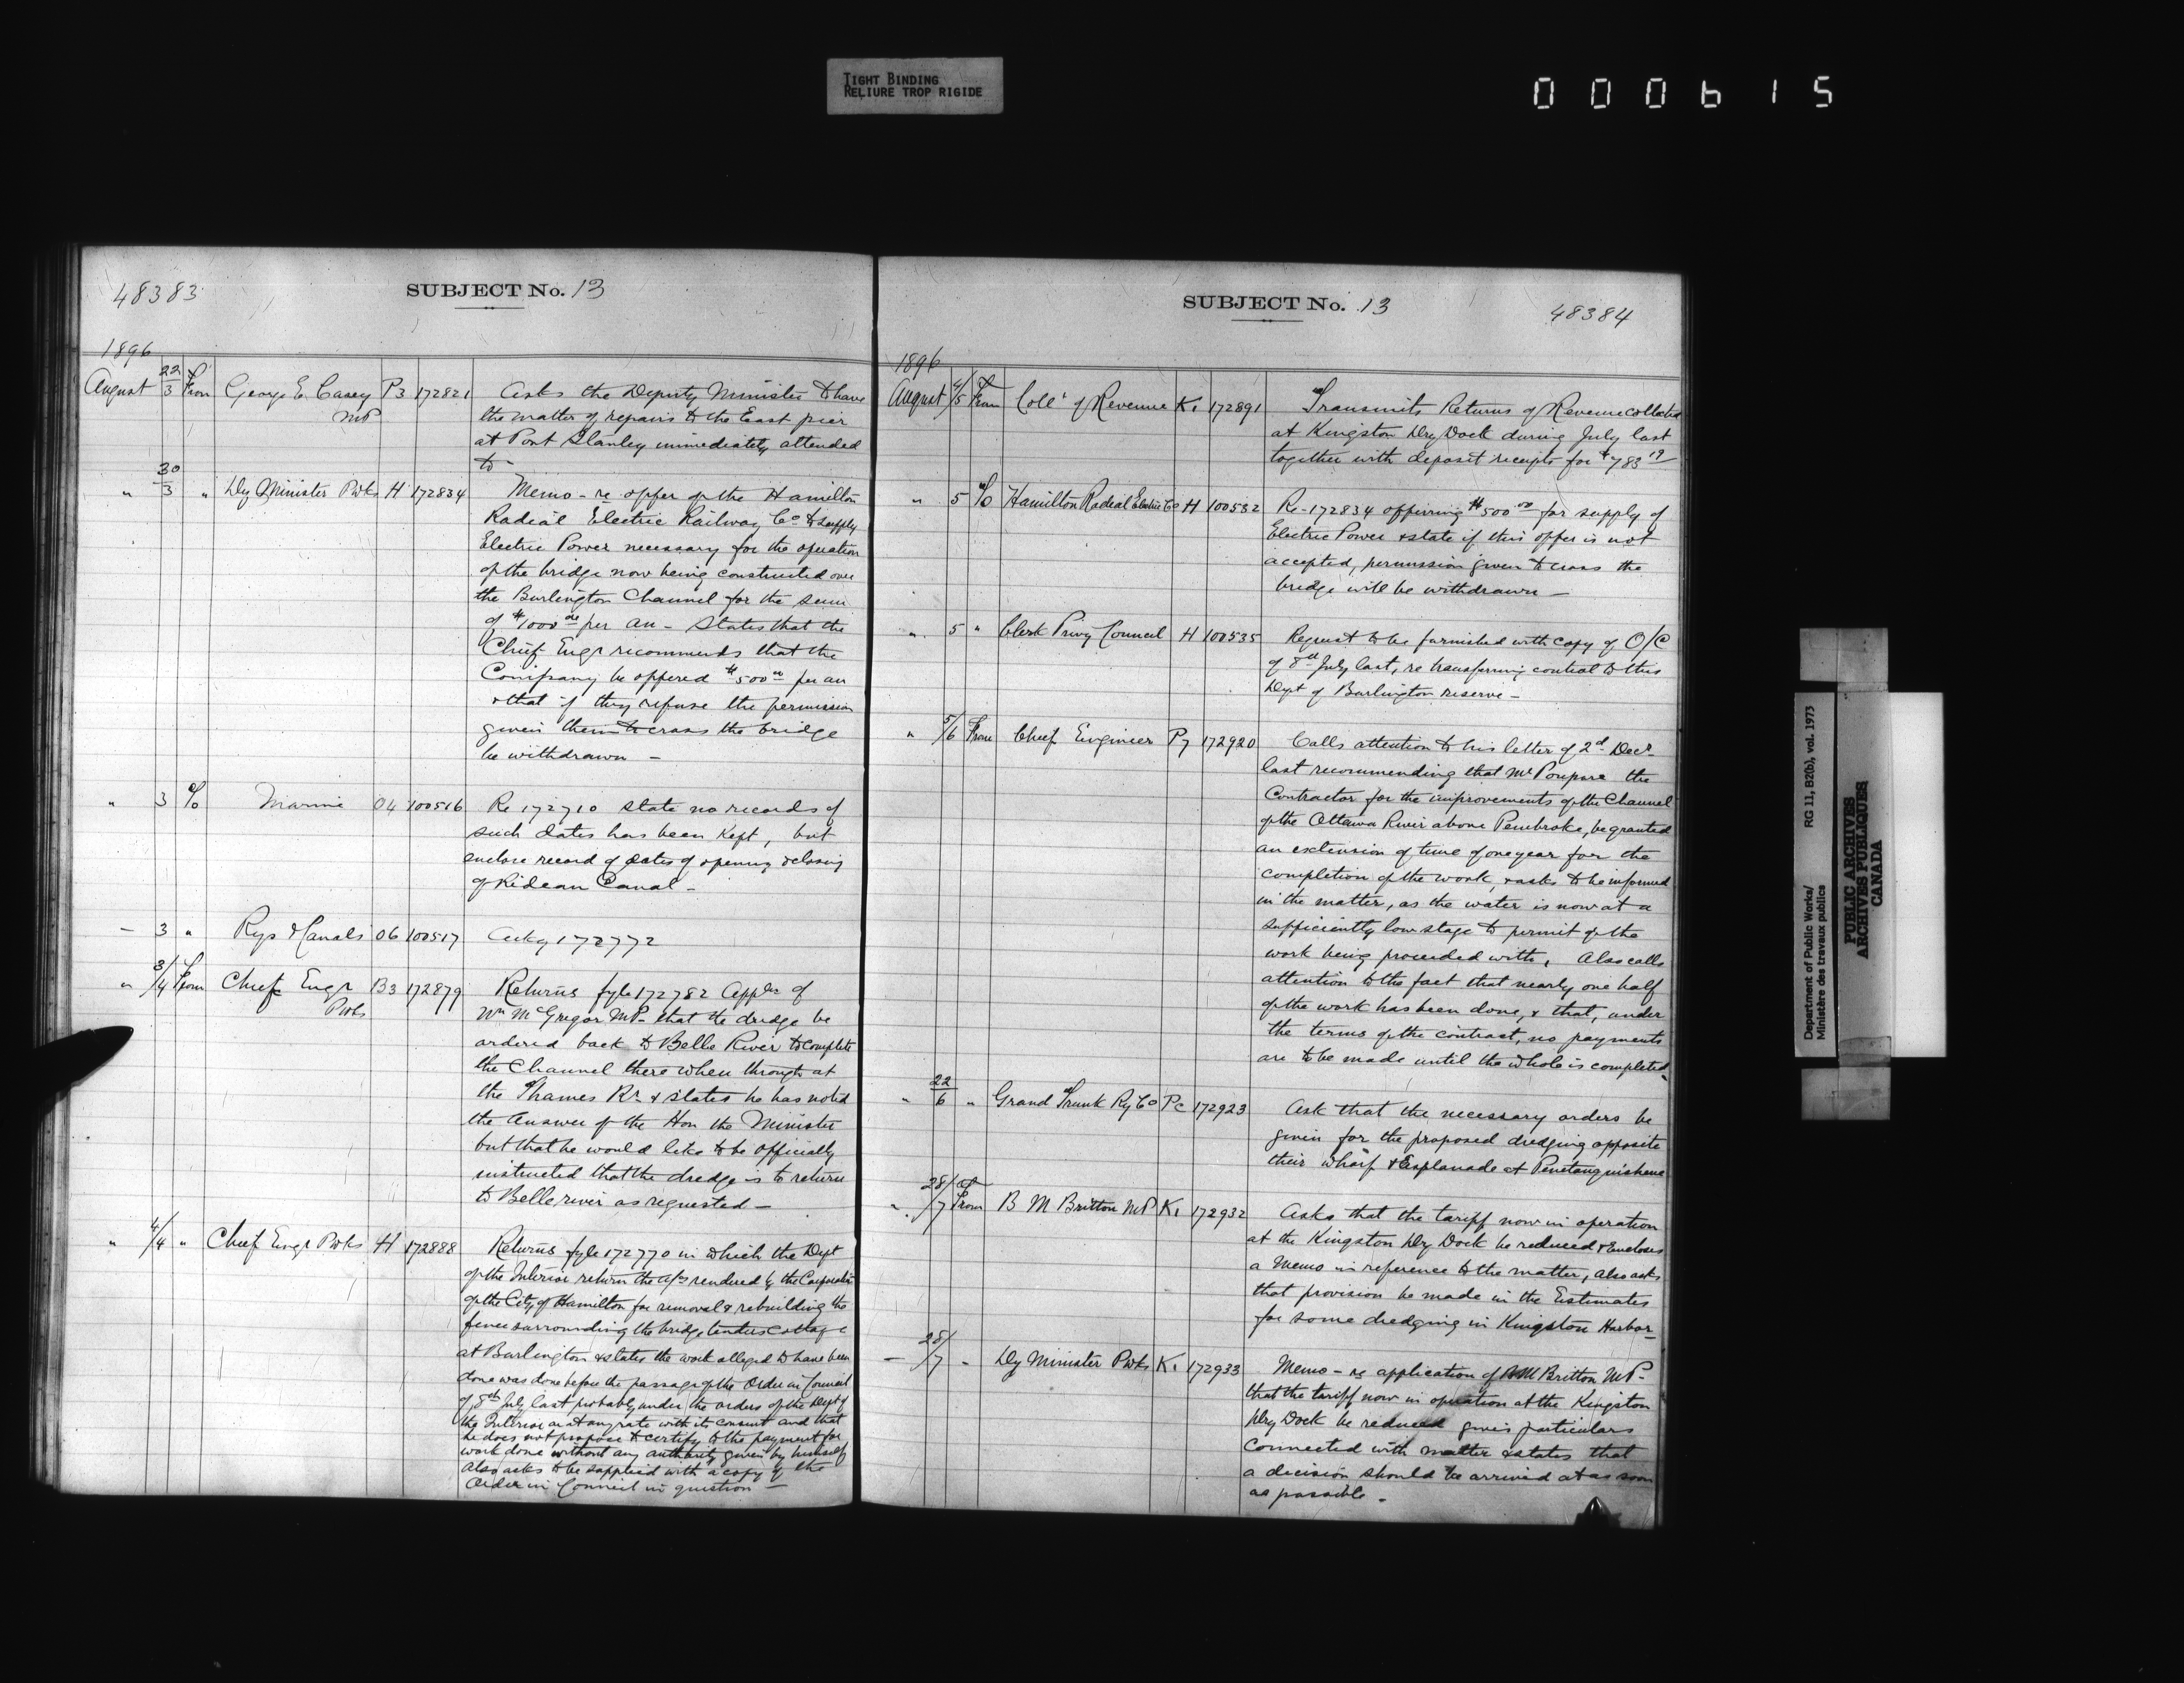 TIGHT BINDING
RELIURE TROP RIGIDE
000615
48383
SUBJECT No. 13
1896
August 22/3 From George E. Casey MP P3 172821 Asks the Deputy Minister to have
the matter of repairs to the East pier
at Port Stanley immediately attended
to -
" 30/3 " Dy Minister Pwks H 172834 Memo - re offer of the Hamilton
Radial Electric Railway Co. to supply
Electric Power necessary for the operation
of the bridge now being constructed over
the Burlington Channel for the sum
of $1000 00 per an - States that the
Chief Engr recommends that the
Company be offered $500 00 per an
& that if they refuse the permission
given them to cross the bridge
be withdrawn -
" 3 To Marine 04 100516 Re 172710 state no records of
such dates has been kept, but
enclose record of dates of opening & closing
of Rideau Canal -
" 3 " Rys & Canals 06 100517 Ackg 172772
" 3/4 From Chief Engr Pwks B3 172879 Returns fyle 172782 Appln of
Wm McGregor MP - that the dredge be
ordered back to Belle River to complete
the Channel there when through at
the Thames Rr. & states he has noted
the answer of the Hon the Minister
but that he would like to be officially
instructed that the dredge is to return
to Belle river as requested -
" 4/4 " Chief Engr Pwks H 172888 Returns fyle 172770 in which the Dept
of the Interior return the a/cs rendered by the Corporation
of the City of Hamilton for removal & rebuilding the
fence surrounding the bridge tenders cottage
at Burlington & states the work alleged to have been
done was done before the passage of the Order in Council
of 8th July last probably under the orders of the Dept of
the Interior or at any rate with its consent and that
he does not propose to certify to the payment for
work done without any authority given by himself
Also asks to be supplied with a copy of the
Order in Council in question -
SUBJECT No. 13
48384
1896
August 4/5 From Collr of Revenue K1 172891 Transmits Returns of Revenue collected
at Kingston Dry Dock during July last
together with deposit receipts for $783 19
" 5 To Hamilton Radial Electric Co H 100532 Re - 172834 offering $500 00 for supply of
Electric Power & state if this offer is not
accepted, permission given to cross the
bridge will be withdrawn -
" 5 " Clerk Privy Council H 100535 Request to be furnished with copy of O/C
of 8th July last, re transferring control to this
Dept of Burlington reserve -
" 5/6 From Chief Engineer P7 172920 Calls attention to his letter of 2d Decr
last recommending that Mr Poupore the
Contractor for the improvements of the Channel
of the Ottawa River above Pembroke, be granted
an extension of time of one year for the
completion of the work, & asks to be informed
in the matter, as the water is now at a
sufficiently low stage to permit of the
work being proceeded with, Also calls
attention to the fact that nearly one half
of the work has been done, & that, under
the terms of the contract, no payments
are to be made until the whole is completed.
" 22/6 " Grand Trunk Ry Co Pc 172923 Ask that the necessary orders be
given for the proposed dredging opposite
their wharf & Esplanade at Penetanguishene
" 28/7 From B M Britton MP K1 172932 Asks that the tariff now in operation
at the Kingston Dry Dock be reduced & Encloses
a Memo in reference to the matter, also asks
that provision be made in the Estimates
for some dredging in Kingston Harbor -
" 28/7 " Dy Minister Pwks K1 172933 Memo - re application of B M Britton MP -
that the tariff now in operation at the Kingston
Dry Dock be reduced gives particulars
connected with matter & states that
a decision should be arrived at as soon
as possible -
Department of Public Works/
Ministère des travaux publics
RG 11, B2(b), vol. 1973
PUBLIC ARCHIVES
ARCHIVES PUBLIQUES
CANADA